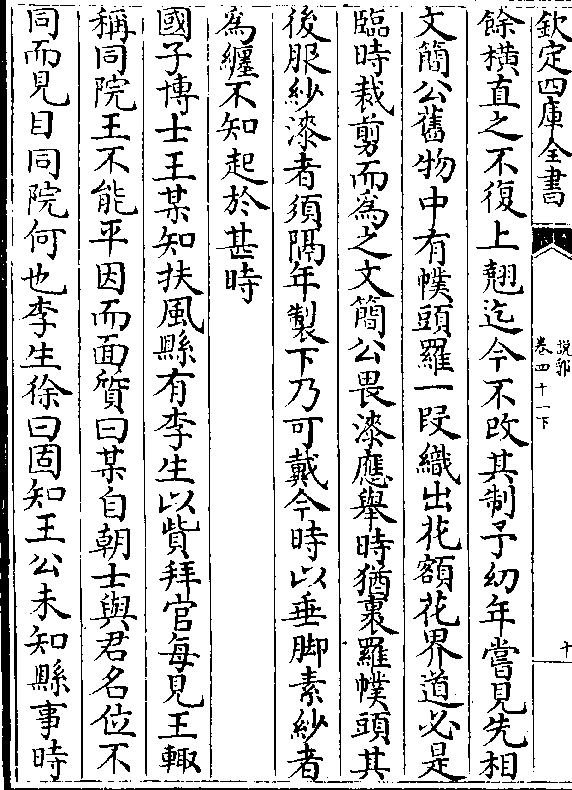 欽定四庫全書
說郛
卷四十一下
十
餘橫直之不復上翹迄今不改其制予幼年嘗見先相
文簡公舊物中有幞頭羅一段織出花額花界道必是
臨時裁剪而為之文簡公畏漆應舉時猶裹羅幞頭其
後服紗漆者須隔年製下乃可戴今時以垂脚素紗者
為纏不知起於甚時
國子博士王某知扶風縣有李生以貲拜官每見王輙
稱同院王不能平因而面質曰某自朝士與君名位不
同而見目同院何也李生徐曰固知王公未知縣事時